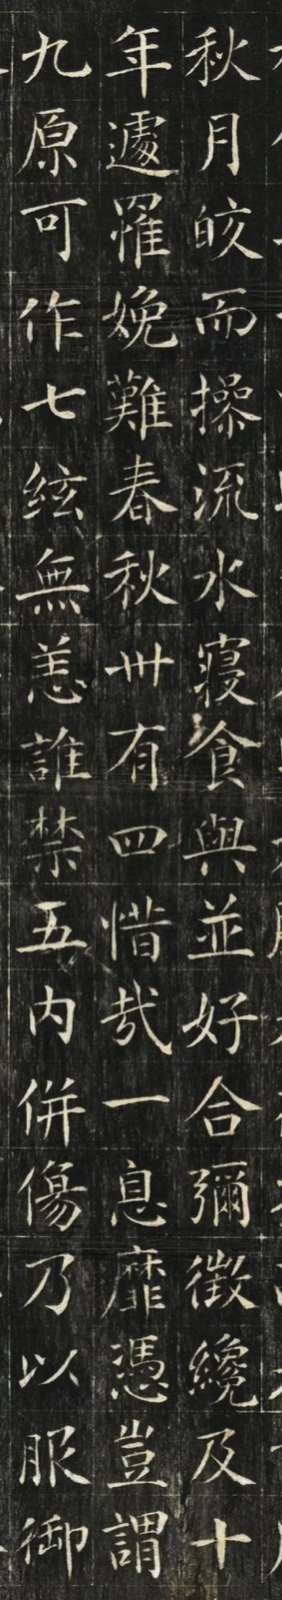 秋月皎而操流水寝食與並好合彌徵纔及十
年遽罹娩難春秋卅有四惜哉一息靡憑豈謂
九原可作七絃無恙誰禁五内併傷乃以服御